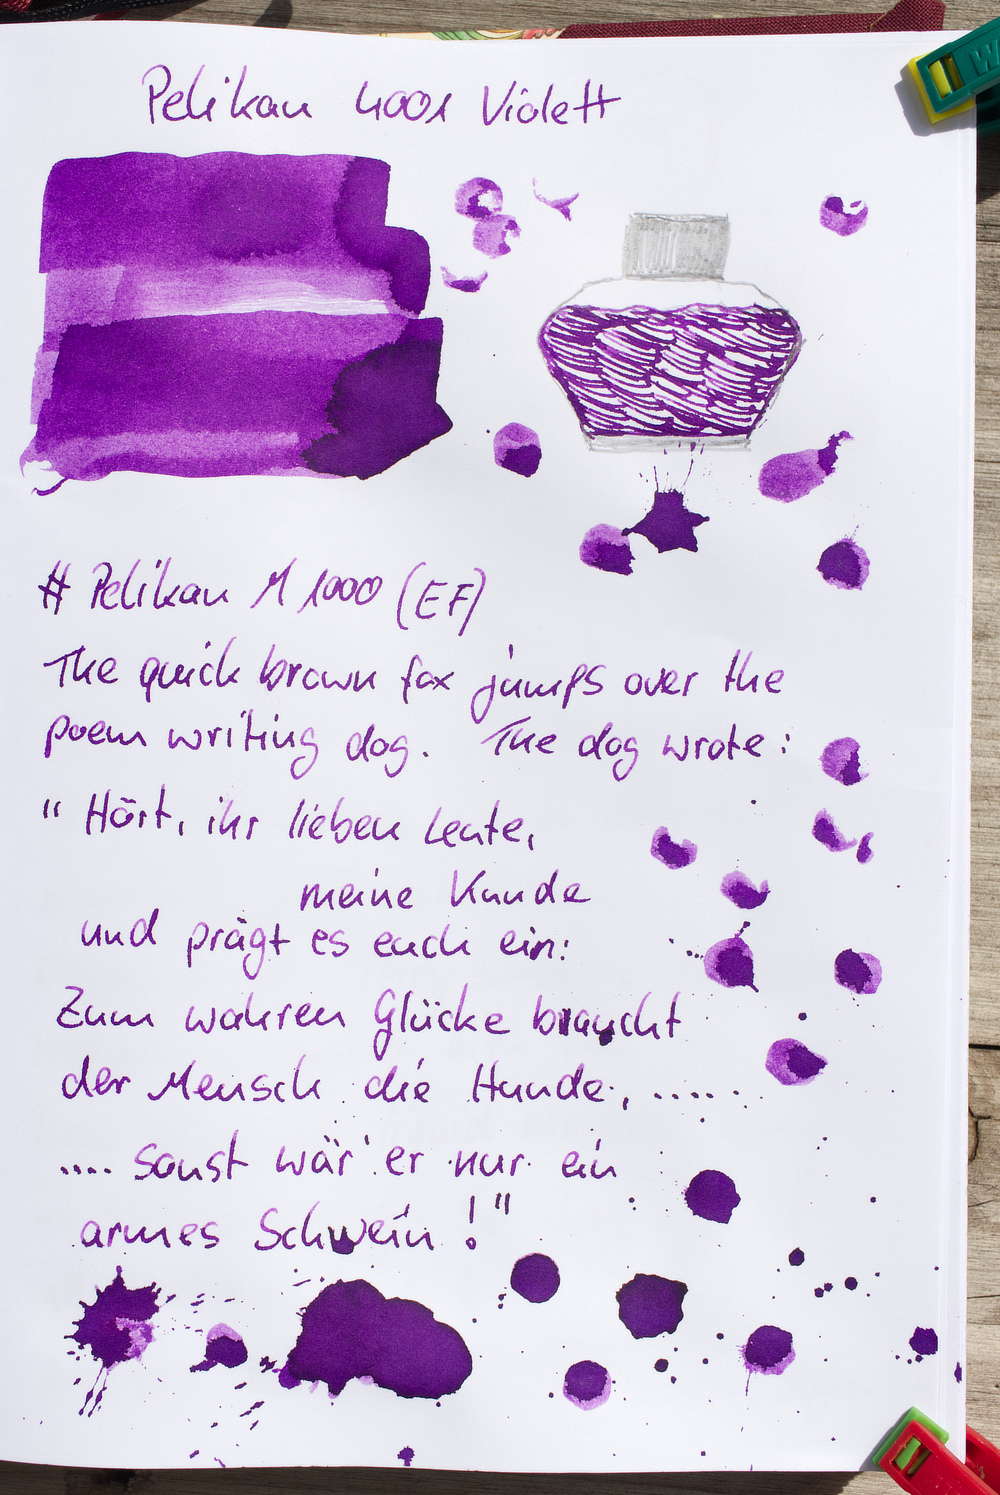 Pelikan 4001 Violett
# Pelikan M 1000 (EF)
The quick brown fox jumps over the
poem writing dog. The dog wrote:
" Hört, ihr lieben Leute,
meine Kunde
und prägt es euch ein:
Zum wahren Glücke braucht
der Mensch die Hunde, .....
.... sonst wär' er nur ein
armes Schwein !"